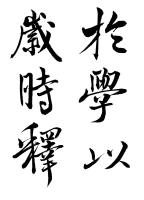 於學以
歲時釋